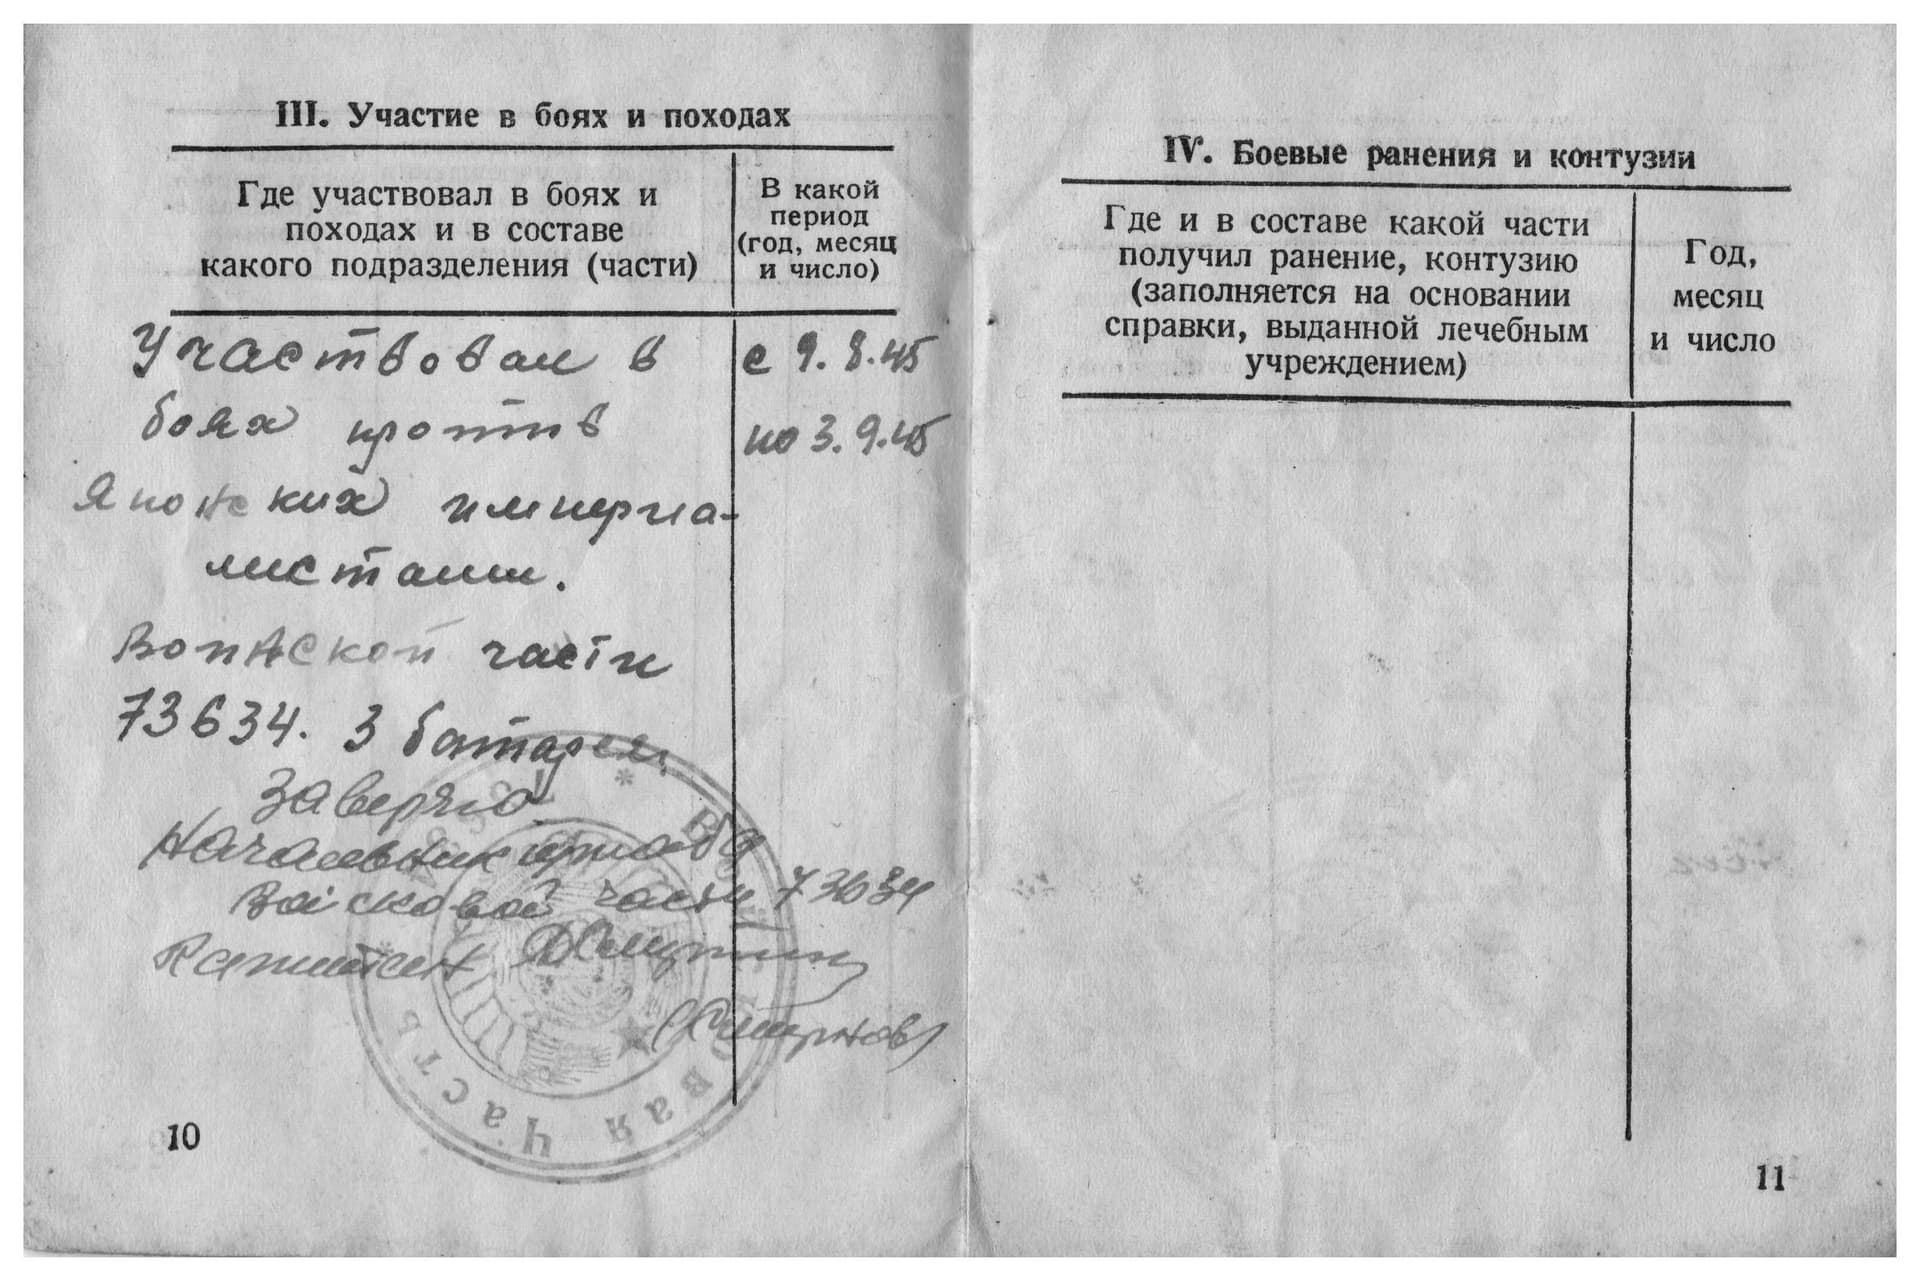 III. Участие в боях и походах
Где участвовал в боях и
походах и в составе
какого подразделения (части)
В какой
период
(год, месяц
и число)
Участвовал в
боях против
Японских империа-
листами.
Воинской части
73634. 3 батарея.
с 9.8.45
по 3.9.45
Заверяю
Начальник штаба
Войсковой части 73634
Капитан
(Смирнов)
Войсковая Часть
10
IV. Боевые ранения и контузии
Где и в составе какой части
получил ранение, контузию
(заполняется на основании
справки, выданной лечебным
учреждением)
Год,
месяц
и число
11